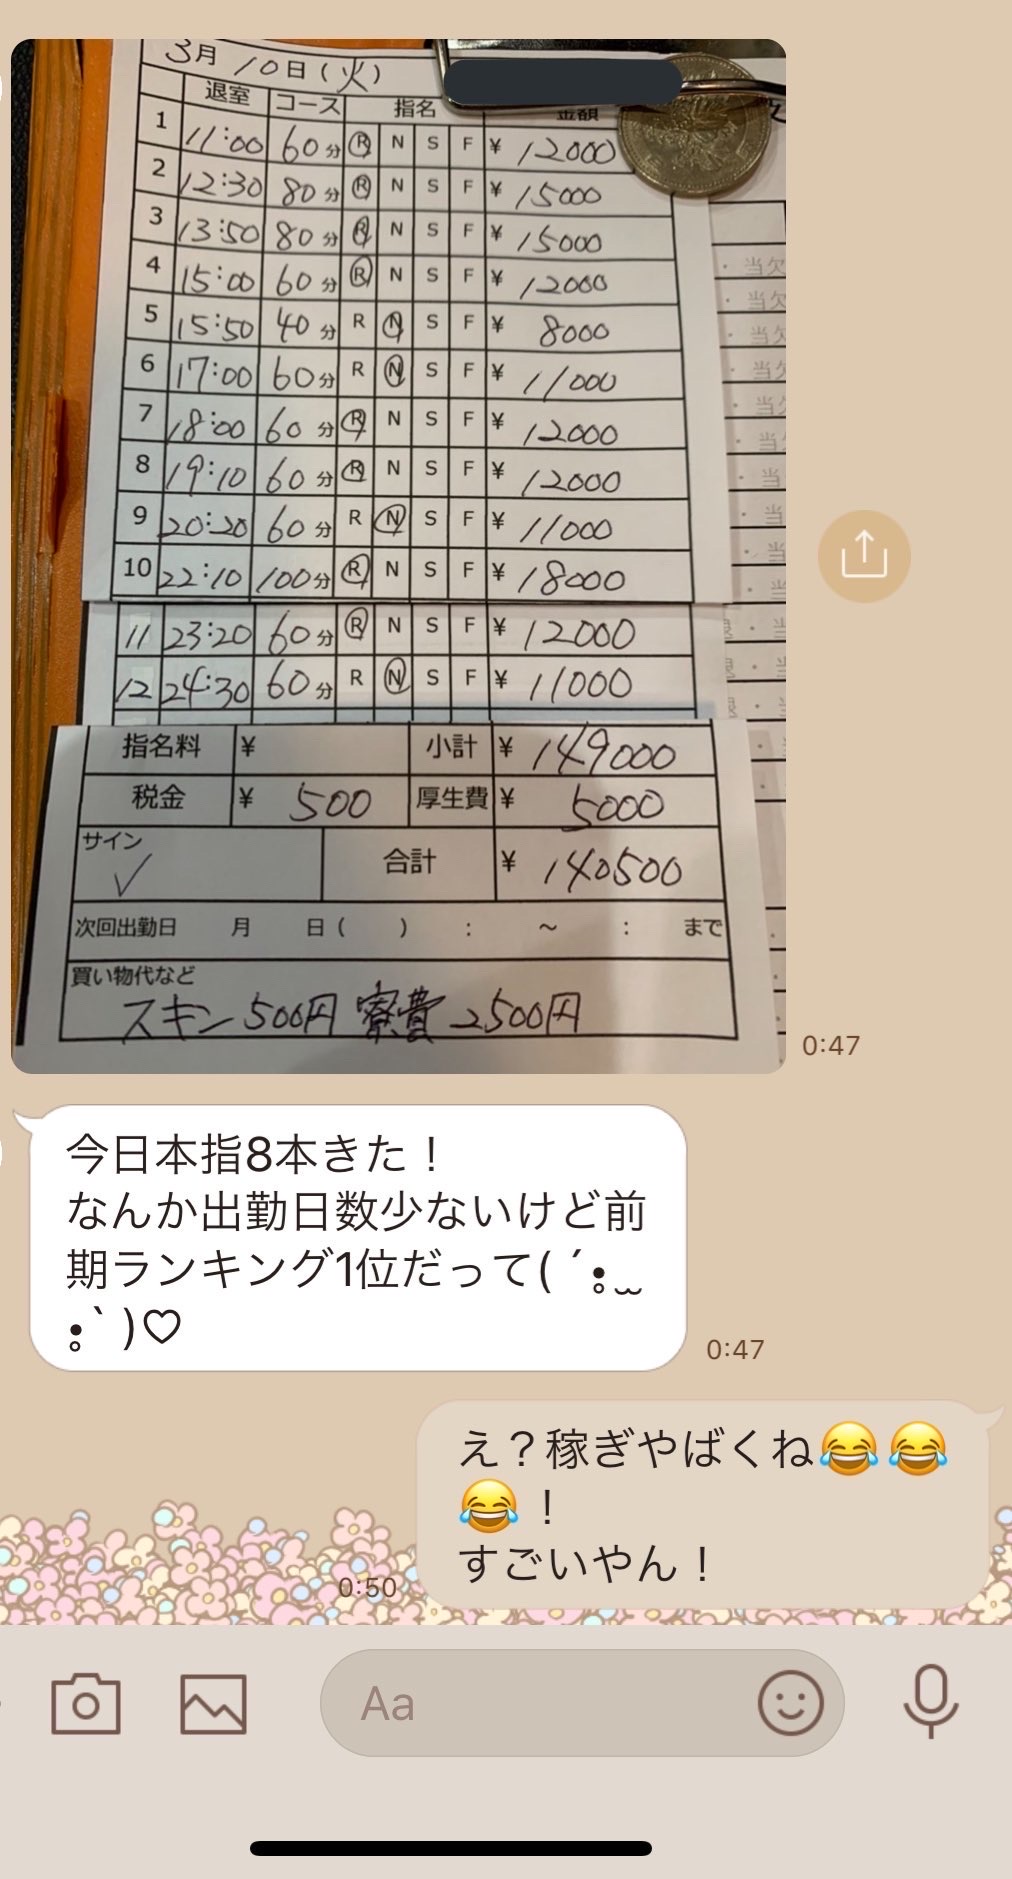 3月10日(火)
退室 コース 指名 金額
1 11:00 60分 R N S F ¥ 12000
2 12:30 80分 R N S F ¥ 15000
3 13:50 80分 R N S F ¥ 15000
4 15:00 60分 R N S F ¥ 12000
5 15:50 40分 R N S F ¥ 8000
6 17:00 60分 R N S F ¥ 11000
7 18:00 60分 R N S F ¥ 12000
8 19:10 60分 R N S F ¥ 12000
9 20:20 60分 R N S F ¥ 11000
10 22:10 100分 R N S F ¥ 18000
11 23:20 60分 R N S F ¥ 12000
12 24:30 60分 R N S F ¥ 11000
指名料 ¥ 小計 ¥ 149000
税金 ¥ 500 厚生費 ¥ 5000
サイン ✓ 合計 ¥ 140500
次回出勤日 月 日( ) : ～ : まで
買い物代など
スキン500円 寮費2500円
・当欠
・当欠
・当欠
・当
・当
・当
・当
・当
・当
0:47
今日本指8本きた！
なんか出勤日数少ないけど前
期ランキング1位だって( ´•̥ ̫
•̥` )♡
0:47
え？稼ぎやばくね😂😂
😂！
すごいやん！
0:50
Aa